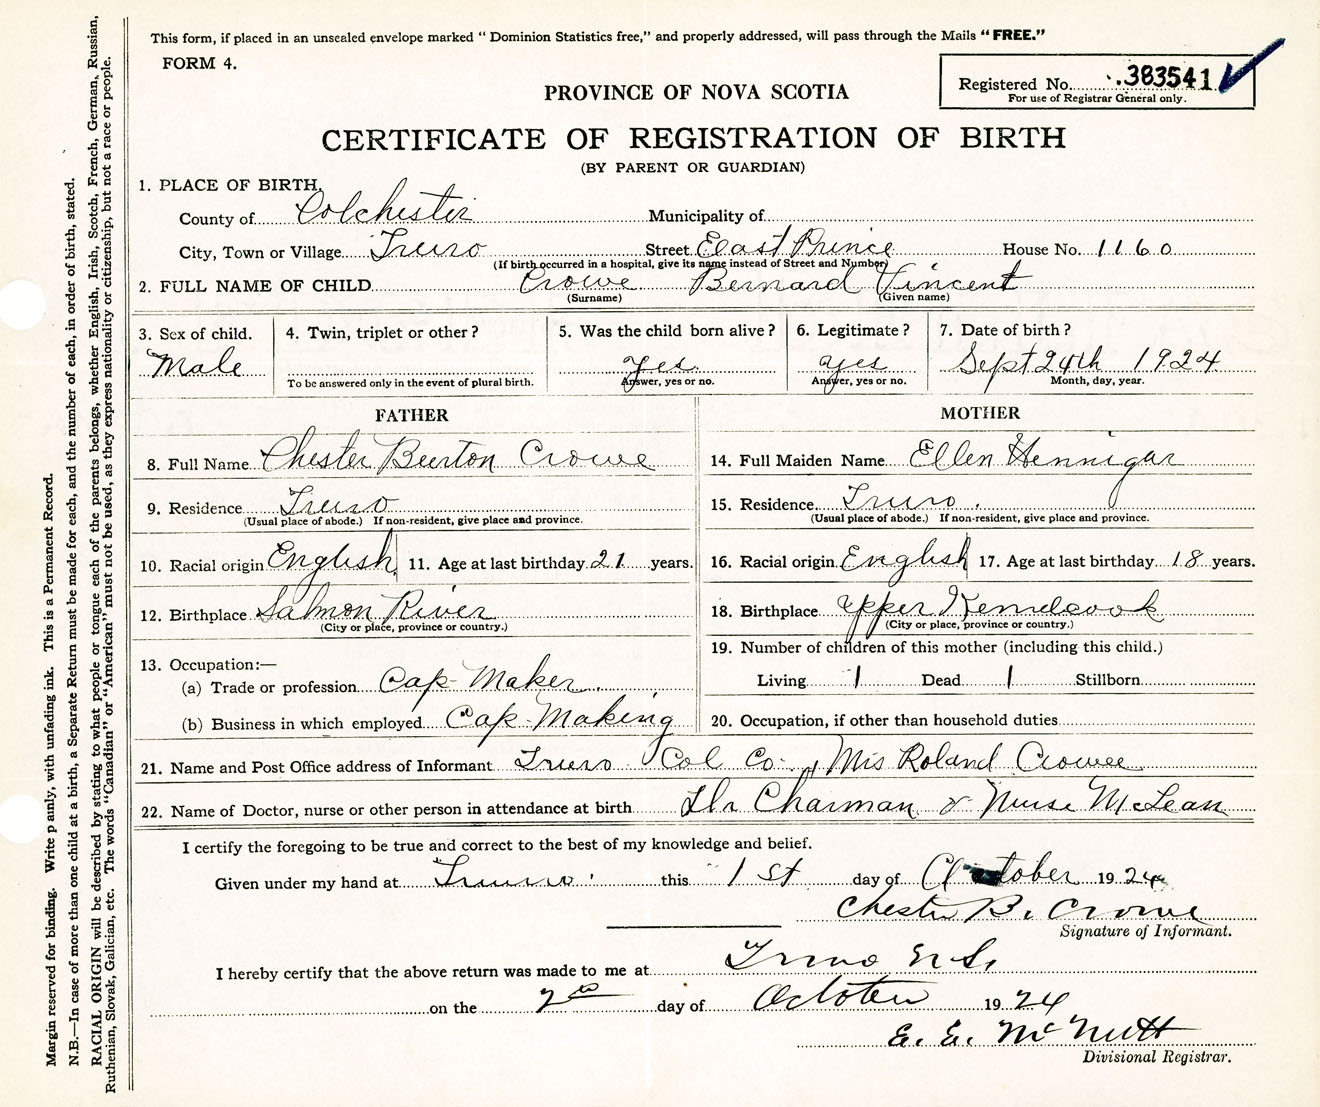 This form, if placed in an unsealed envelope marked “ Dominion Statistics free,” and properly addressed, will pass through the Mails “ FREE.”
FORM 4.
Registered No. 383541
For use of Registrar General only.
PROVINCE OF NOVA SCOTIA
CERTIFICATE OF REGISTRATION OF BIRTH
(BY PARENT OR GUARDIAN)
1. PLACE OF BIRTH,
County of Colchester Municipality of
City, Town or Village Truro Street East Prince House No. 1160
(If birth occurred in a hospital, give its name instead of Street and Number)
2. FULL NAME OF CHILD Crowe Bernard Vincent
(Surname) (Given name)
3. Sex of child. 4. Twin, triplet or other? 5. Was the child born alive? 6. Legitimate? 7. Date of birth?
Male yes yes Sept 24th 1924
To be answered only in the event of plural birth. Answer, yes or no. Answer, yes or no. Month, day, year.
FATHER
8. Full Name Chester Burton Crowe
9. Residence Truro
(Usual place of abode.) If non-resident, give place and province.
10. Racial origin English 11. Age at last birthday 21 years.
12. Birthplace Salmon River
(City or place, province or country.)
13. Occupation:—
(a) Trade or profession Cap Maker
(b) Business in which employed Cap Making
MOTHER
14. Full Maiden Name Ellen Hennigar
15. Residence Truro.
(Usual place of abode.) If non-resident, give place and province.
16. Racial origin English 17. Age at last birthday 18 years.
18. Birthplace Upper Kennetcook
(City or place, province or country.)
19. Number of children of this mother (including this child.)
Living 1 Dead 1 Stillborn
20. Occupation, if other than household duties
21. Name and Post Office address of Informant Truro Col Co., Mis Roland Crowe
22. Name of Doctor, nurse or other person in attendance at birth Dr Charman & Nurse McLean
I certify the foregoing to be true and correct to the best of my knowledge and belief.
Given under my hand at Truro this 1st day of October 1924
Chester B. Crowe
Signature of Informant.
I hereby certify that the above return was made to me at Truro N.S.
on the 2nd day of October 1924
E. E. McNutt
Divisional Registrar.
Margin reserved for binding. Write p anly, with unfading ink. This is a Permanent Record.
N.B.—In case of more than one child at a birth, a Separate Return must be made for each, and the number of each, in order of birth, stated.
RACIAL ORIGIN will be described by stating to what people or tongue each of the parents belongs, whether English, Irish, Scotch, French, German, Russian,
Ruthenian, Slovak, Galician, etc. The words “Canadian” or “American” must not be used, as they express nationality or citizenship, but not a race or people.